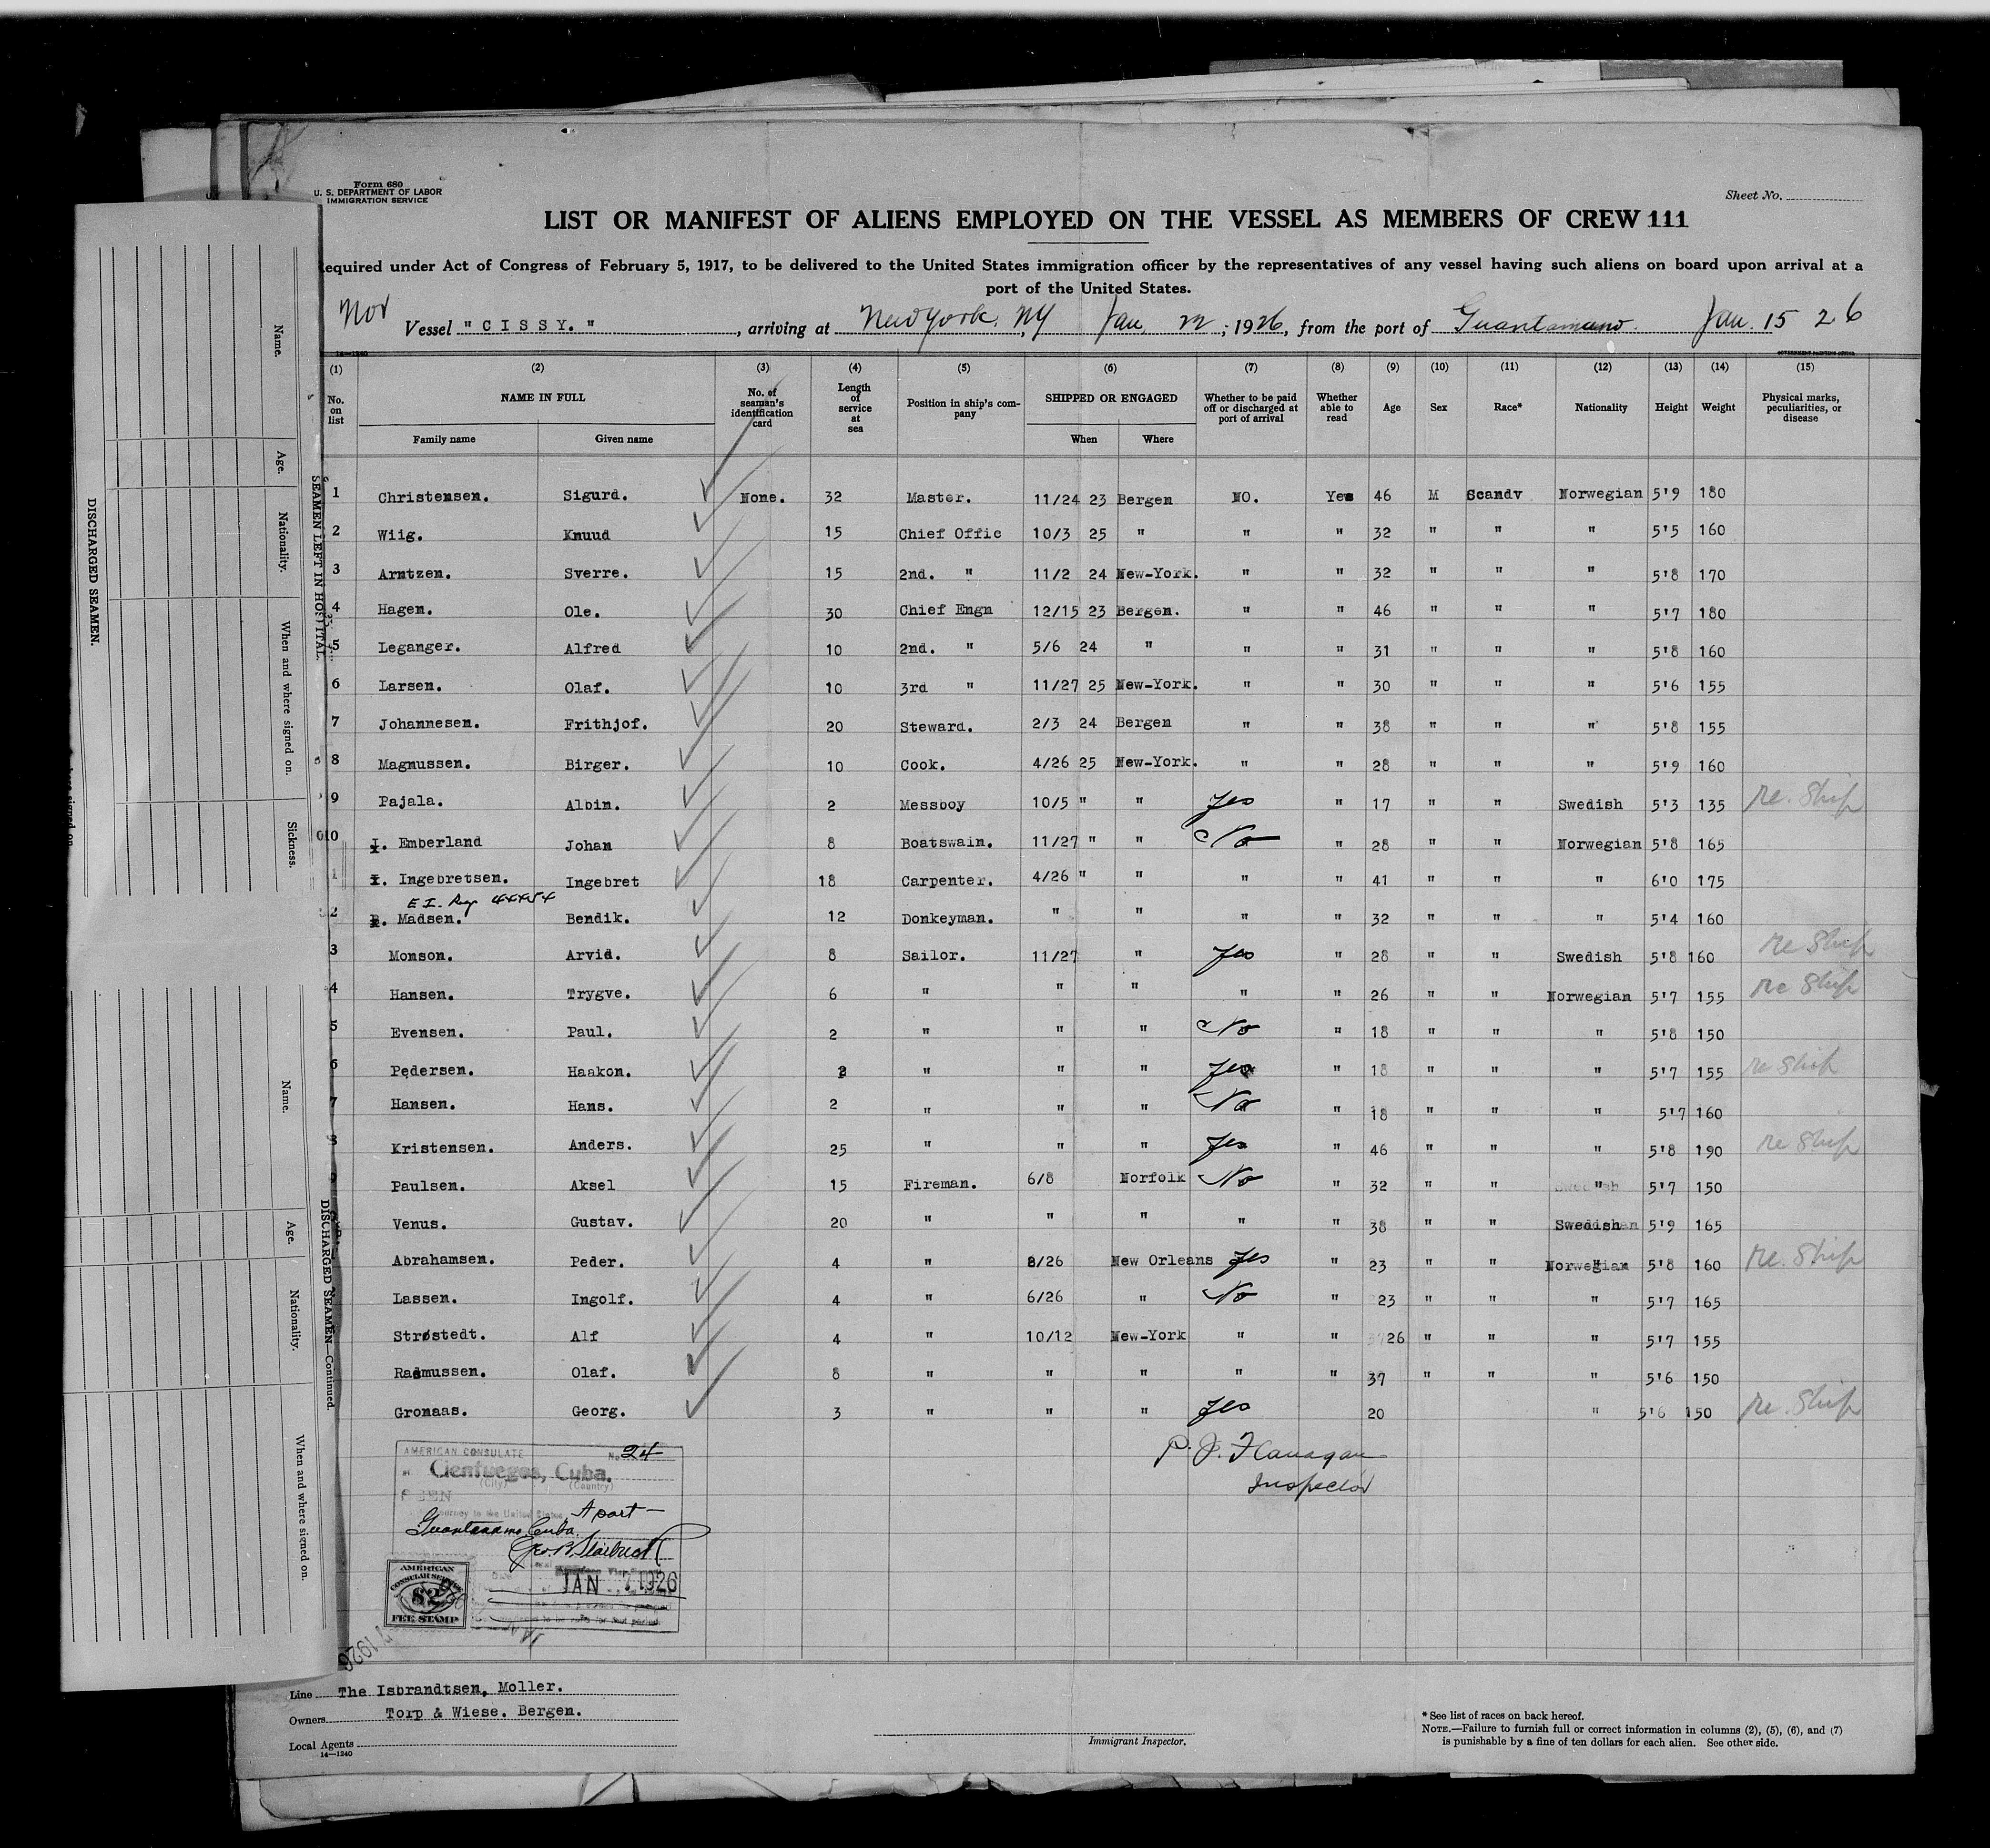 Form 680
U. S. DEPARTMENT OF LABOR
IMMIGRATION SERVICE
Sheet No.
LIST OR MANIFEST OF ALIENS EMPLOYED ON THE VESSEL AS MEMBERS OF CREW 111
equired under Act of Congress of February 5, 1917, to be delivered to the United States immigration officer by the representatives of any vessel having such aliens on board upon arrival at a
port of the United States.
Nor Vessel "CISSY." , arriving at New York, NY Jan, 22, 1926, from the port of Guantamano. Jan. 15 26
14—1240 GOVERNMENT PRINTING OFFICE
(1) (2) (3) (4) (5) (6) (7) (8) (9) (10) (11) (12) (13) (14) (15)
No. on list NAME IN FULL No. of seaman's identification card Length of service at sea Position in ship's company SHIPPED OR ENGAGED Whether to be paid off or discharged at port of arrival Whether able to read Age Sex Race* Nationality Height Weight Physical marks, peculiarities, or disease
Family name Given name When Where
1 Christensen. Sigurd. None. 32 Master. 11/24 23 Bergen NO. Yes 46 M Scandv Norwegian 5'9 180
2 Wiig. Knuud 15 Chief Offic 10/3 25 " " " 32 " " " 5'5 160
3 Arntzen. Sverre. 15 2nd. " 11/2 24 New-York. " " 32 " " " 5'8 170
4 Hagen. Ole. 30 Chief Engn 12/15 23 Bergen. " " 46 " " " 5'7 180
5 Leganger. Alfred 10 2nd. " 5/6 24 " " " 31 " " " 5'8 160
6 Larsen. Olaf. 10 3rd " 11/27 25 New-York. " " 30 " " " 5'6 155
7 Johannesen. Frithjof. 20 Steward. 2/3 24 Bergen " " 38 " " " 5'8 155
8 Magnussen. Birger. 10 Cook. 4/26 25 New-York. " " 28 " " " 5'9 160
9 Pajala. Albin. 2 Messboy 10/5 " " Yes " 17 " " Swedish 5'3 135 Re. Ship
10 I. Emberland Johan 8 Boatswain. 11/27 " " No " 28 " " Norwegian 5'8 165
1 I. Ingebretsen. Ingebret 18 Carpenter. 4/26 " " " " 41 " " " 6'0 175
E I. Reg 44454
2 B. Madsen. Bendik. 12 Donkeyman. " " " " 32 " " " 5'4 160
3 Monson. Arvid. 8 Sailor. 11/27 " Yes " 28 " " Swedish 5'8 160 Re Ship
4 Hansen. Trygve. 6 " " " " " 26 " " Norwegian 5'7 155 Re Ship
5 Evensen. Paul. 2 " " " No " 18 " " " 5'8 150
6 Pedersen. Haakon. 2 " " " Yes " 18 " " " 5'7 155 re Ship
7 Hansen. Hans. 2 " " " No " 18 " " " 5'7 160
8 Kristensen. Anders. 25 " " " Yes " 46 " " " 5'8 190 re Ship
9 Paulsen. Aksel 15 Fireman. 6/8 Norfolk No " 32 " " " 5'7 150
Venus. Gustav. 20 " " " " " 38 " " Swedish 5'9 165
Abrahamsen. Peder. 4 " 8/26 New Orleans Yes " 23 " " Norwegian 5'8 160 Re. Ship
Lassen. Ingolf. 4 " 6/26 " No " 23 " " " 5'7 165
Strøstedt. Alf 4 " 10/12 New-York " " 26 " " " 5'7 155
Rasmussen. Olaf. 8 " " " " " 37 " " " 5'6 150
Gronaas. Georg. 3 " " " Yes 20 " 5'6 150 Re. Ship
P. J. Flanagan
Inspector
AMERICAN CONSULATE No. 24
Cienfuegos, Cuba.
(City) (Country)
SEEN
journey to the United States A port
Guantanamo, Cuba.
JAN 7 1926
AMERICAN
CONSULAR SERVICE
$2
FEE STAMP
7 1926
Line The Isbrandtsen, Moller.
Owners Torp & Wiese. Bergen.
Local Agents
14—1240
Immigrant Inspector.
* See list of races on back hereof.
NOTE.—Failure to furnish full or correct information in columns (2), (5), (6), and (7)
is punishable by a fine of ten dollars for each alien. See other side.
DISCHARGED SEAMEN.
Name.
Age.
Nationality.
When and where signed on.
Sickness.
SEAMEN LEFT IN HOSPITAL.
Name.
Age.
Nationality.
When and where signed on.
DISCHARGED SEAMEN—Continued.